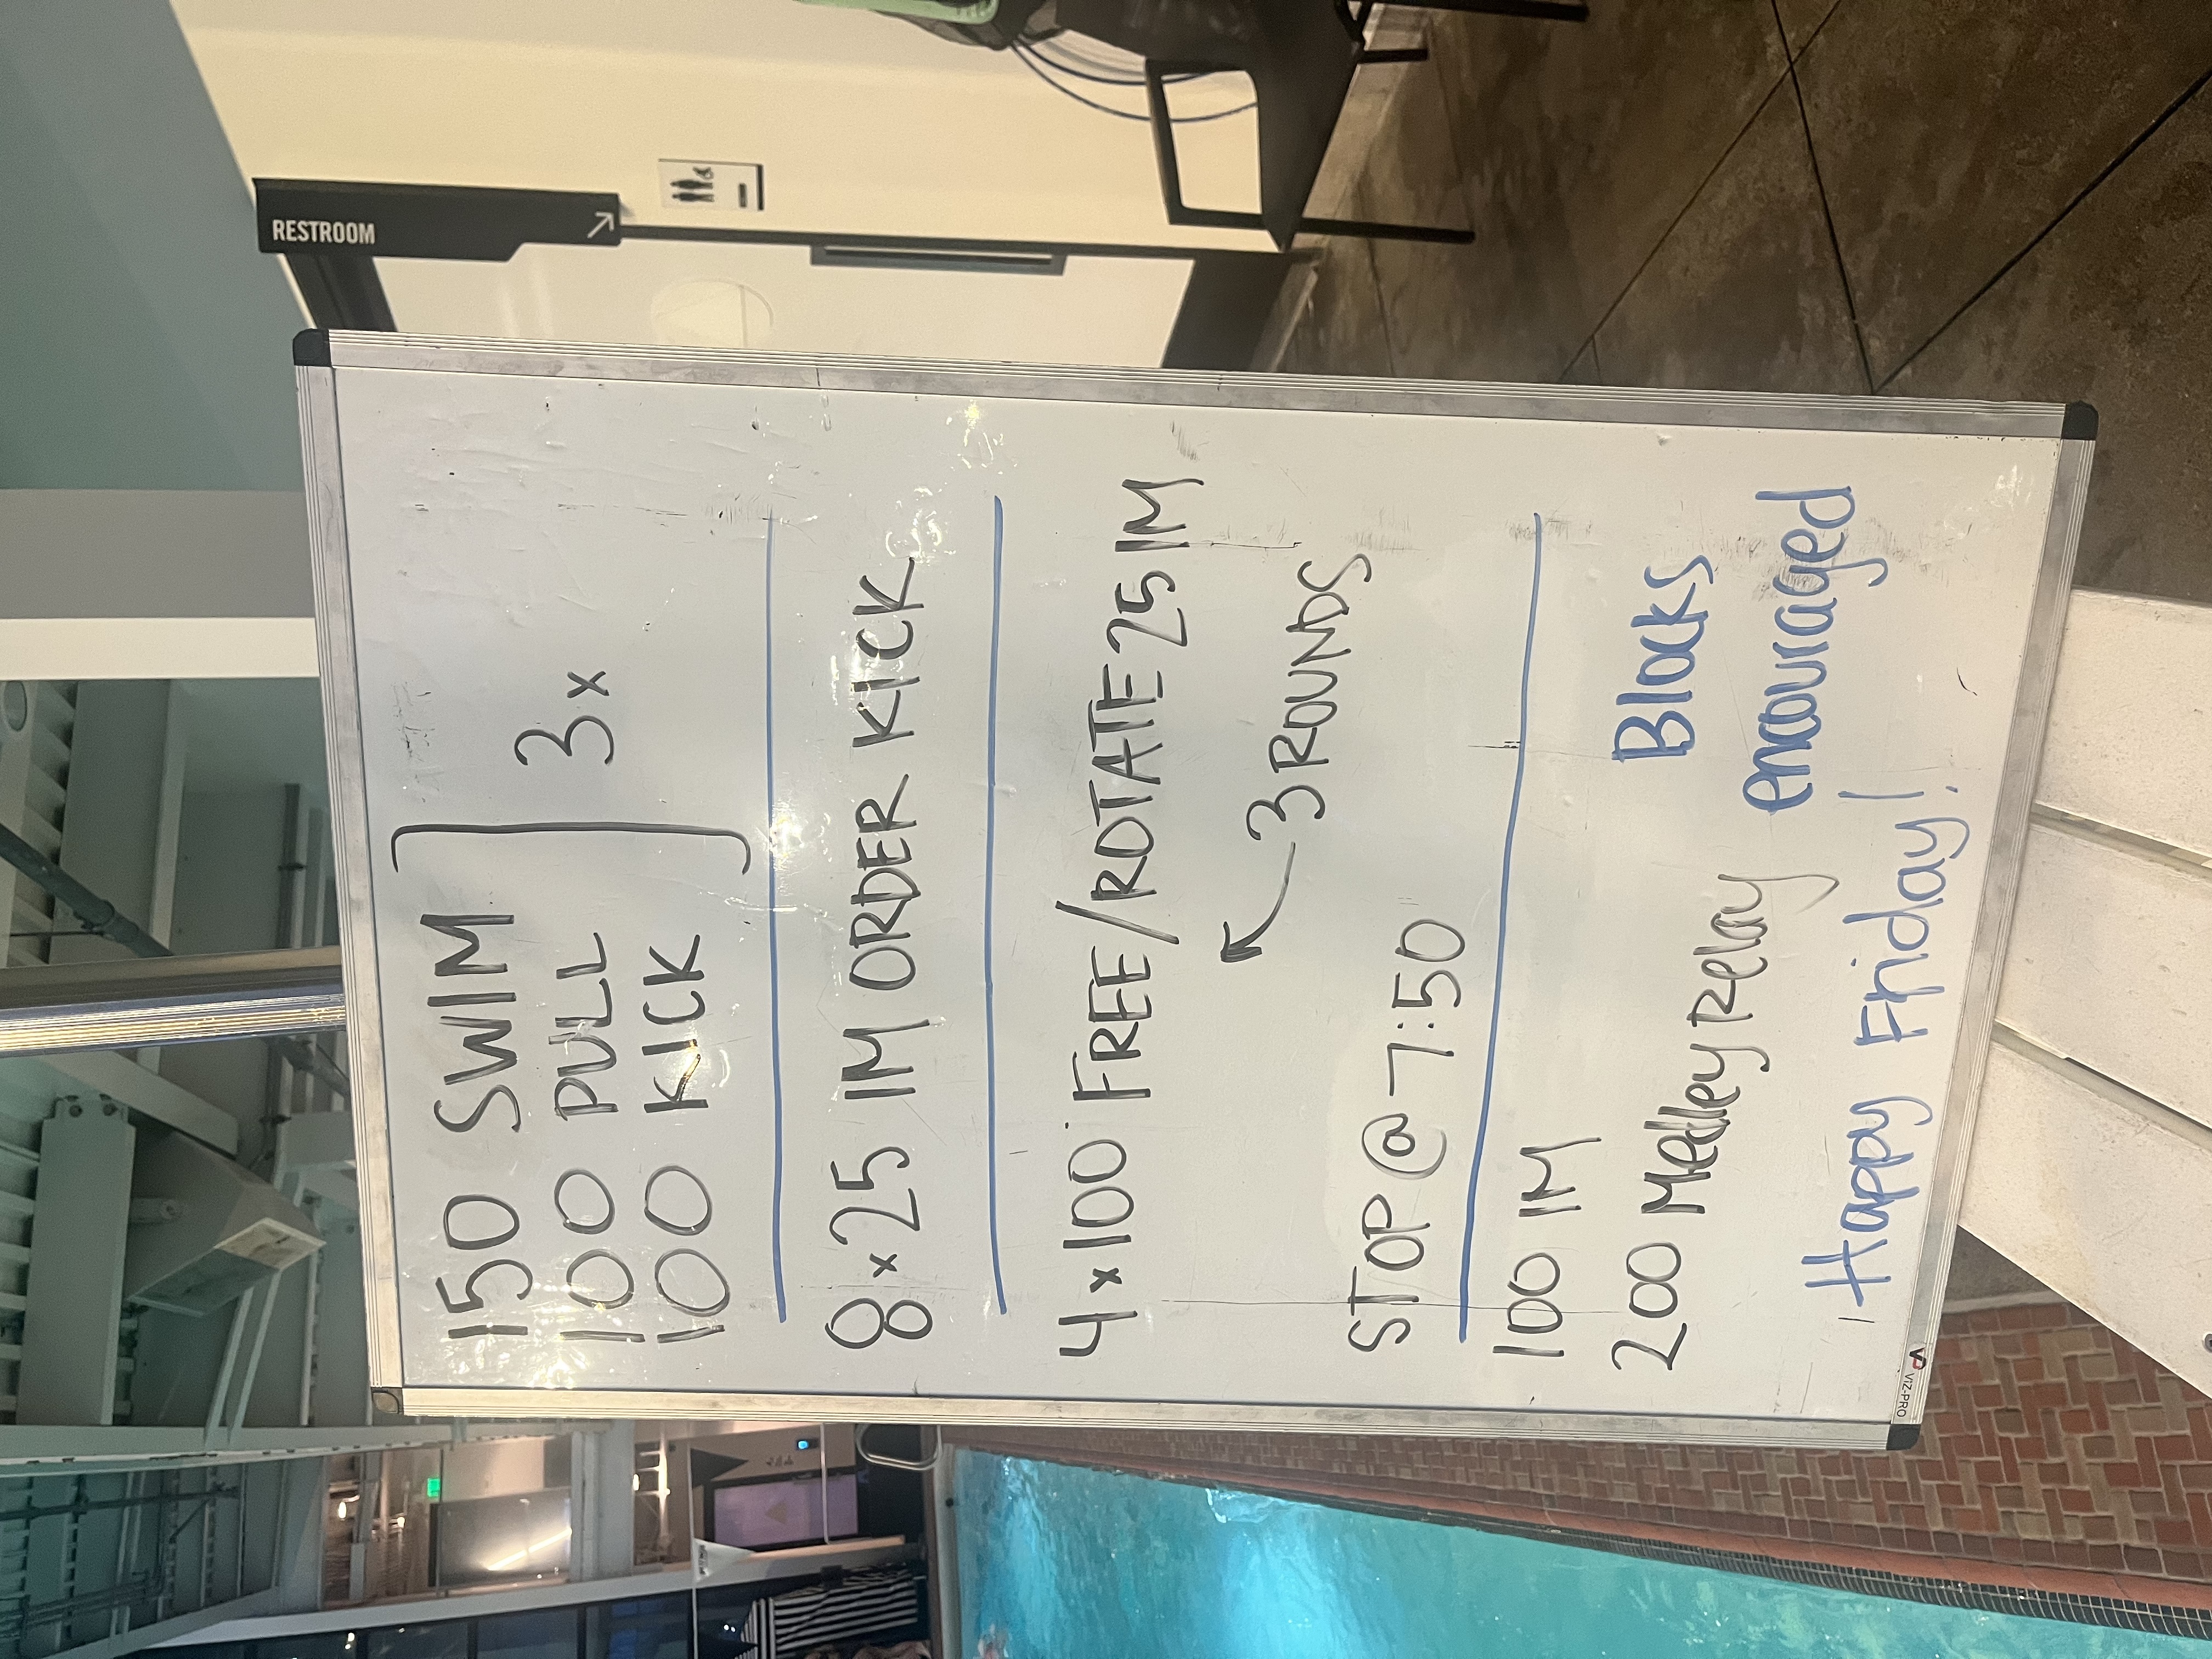 RESTROOM
150 SWIM
100 PULL 3x
100 KICK
8x25 IM ORDER KICK
4x100 FREE/ROTATE 25 IM
3 ROUNDS
STOP @ 7:50
100 IM
200 Medley Relay
Blocks
encouraged
Happy Friday!
VIZ-PRO